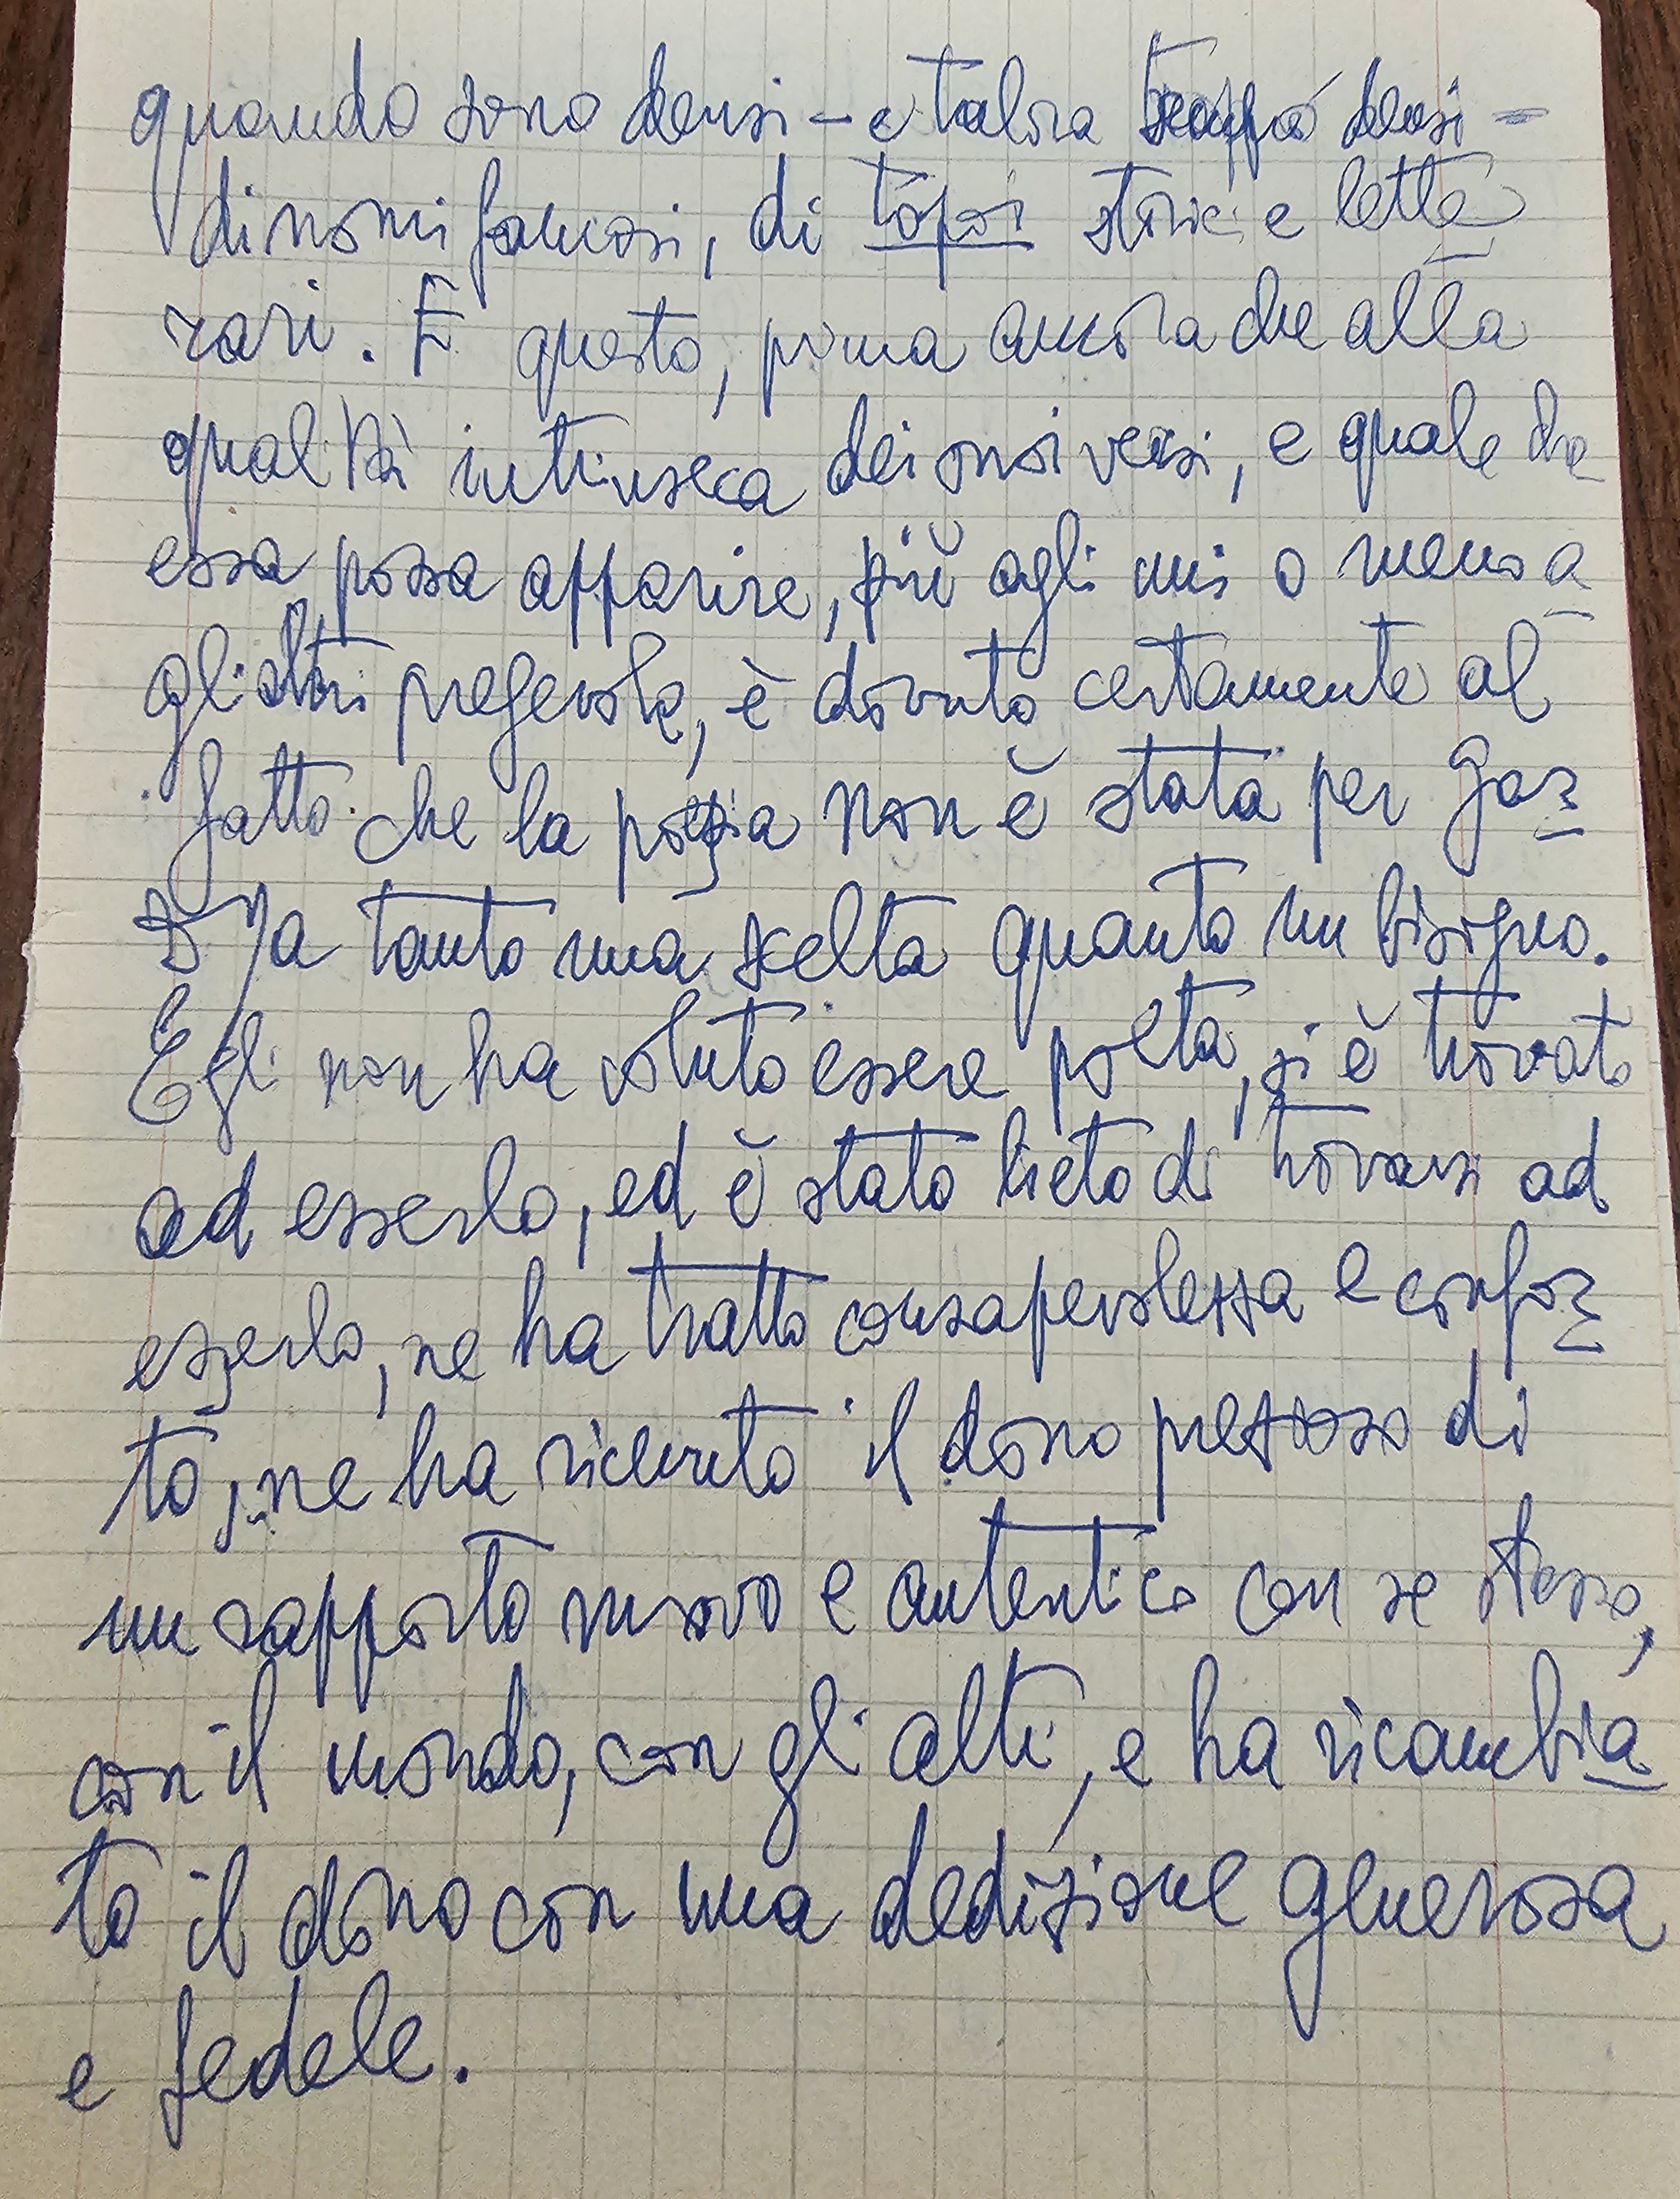 quando sono densi – e talora troppo densi –
di nomi famosi, di topoi storici e lette
rari. E questo, prima ancora che alla
qualità intrinseca dei suoi versi, e quale che
essa possa apparire, più agli uni o meno a
gli altri pregevole, è dovuto certamente al
fatto che la poesia non è stata per Gar
D'ja tanto una scelta quanto un bisogno.
Egli non ha voluto essere poeta, si è trovato
ad esserlo, ed è stato lieto di trovarsi ad
esserlo, ne ha tratto consapevolezza e confor
to, ne ha ricevuto il dono prezioso di
un rapporto nuovo e autentico con se stesso,
con il mondo, con gli altri, e ha ricambia
to il dono con una dedizione generosa
e fedele.